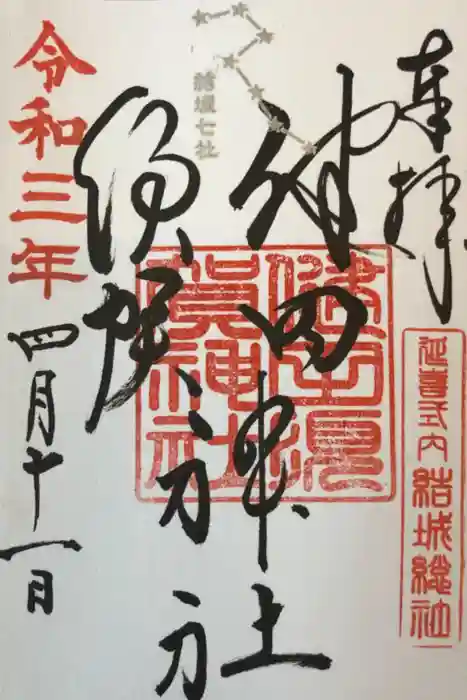 奉拝
延喜式内 結城総社
結城七社
健田神社
須賀神社
健田須
賀神社
令和三年
四月十一日